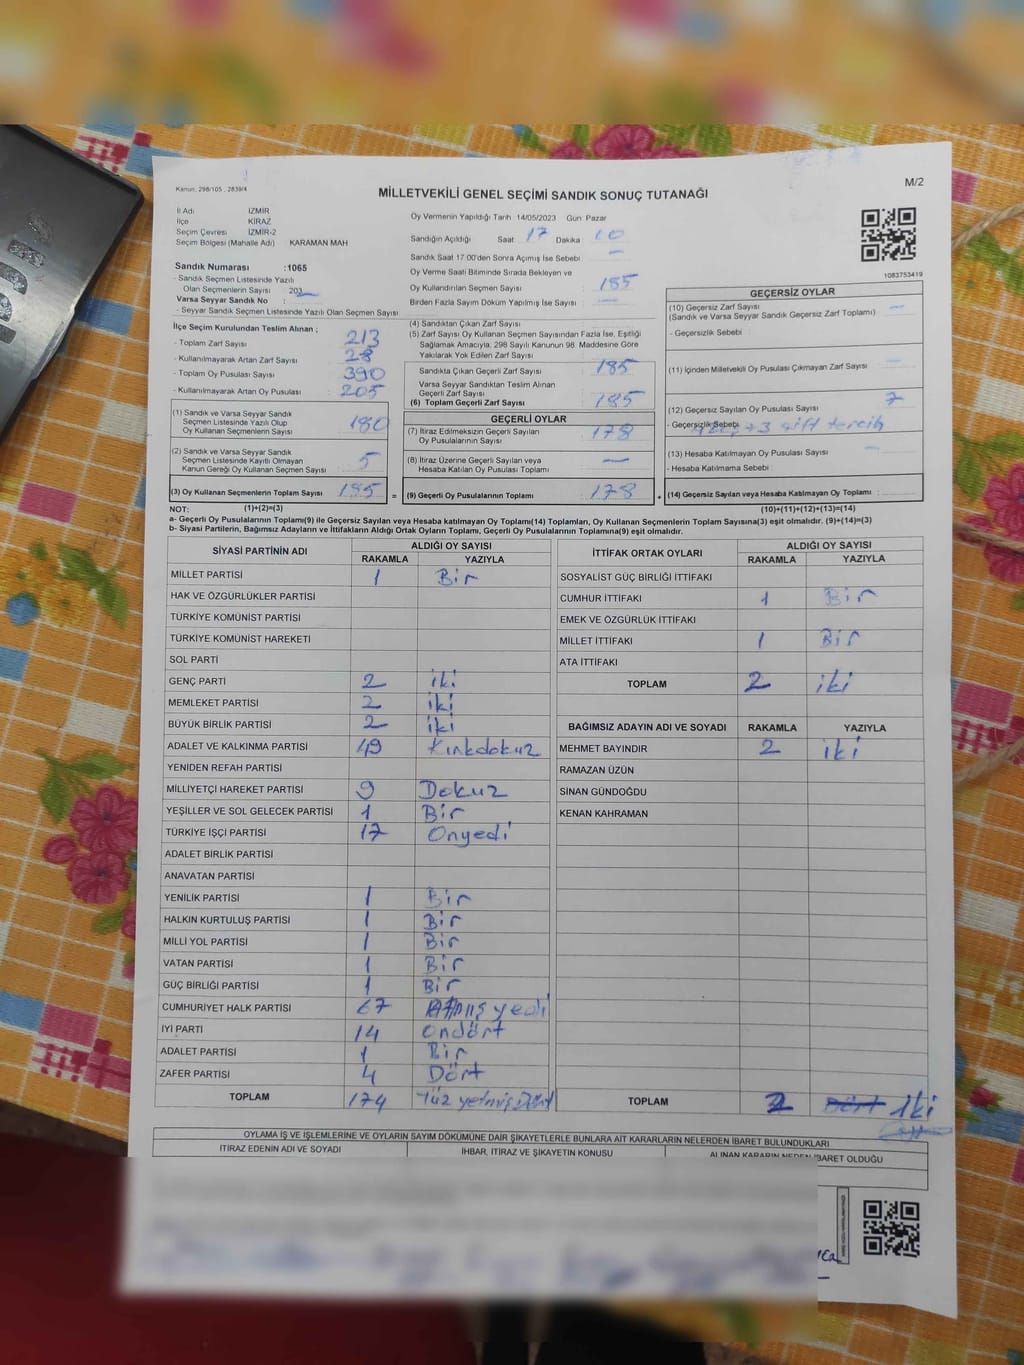 Kanun, 298/105 , 2839/4
MİLLETVEKİLİ GENEL SEÇİMİ SANDIK SONUÇ TUTANAĞI
M/2
İl Adı İZMİR
İlçe KİRAZ
Seçim Çevresi İZMİR-2
Seçim Bölgesi (Mahalle Adı) KARAMAN MAH
Oy Vermenin Yapıldığı Tarih 14/05/2023 Gün: Pazar
Sandığın Açıldığı Saat: 17 Dakika: 10
Sandık Saat 17:00'den Sonra Açımış İse Sebebi —
Oy Verme Saati Bitiminde Sırada Bekleyen ve
Oy Kullandırılan Seçmen Sayısı : 185
Birden Fazla Sayım Döküm Yapılmış İse Sayısı : —
1083753419
Sandık Numarası :1065
- Sandık Seçmen Listesinde Yazılı
Olan Seçmenlerin Sayısı : 203
Varsa Seyyar Sandık No :
- Seyyar Sandık Seçmen Listesinde Yazılı Olan Seçmen Sayısı
İlçe Seçim Kurulundan Teslim Alınan ;
- Toplam Zarf Sayısı 213
- Kullanılmayarak Artan Zarf Sayısı 28
- Toplam Oy Pusulası Sayısı 390
- Kullanılmayarak Artan Oy Pusulası 205
(1) Sandık ve Varsa Seyyar Sandık
Seçmen Listesinde Yazılı Olup
Oy Kullanan Seçmenlerin Sayısı 180
(2) Sandık ve Varsa Seyyar Sandık
Seçmen Listesinde Kayıtlı Olmayan
Kanun Gereği Oy Kullanan Seçmen Sayısı : 5
(3) Oy Kullanan Seçmenlerin Toplam Sayısı 185 =
(4) Sandıktan Çıkan Zarf Sayısı
(5) Zarf Sayısı Oy Kullanan Seçmen Sayısından Fazla İse, Eşitliği
Sağlamak Amacıyla, 298 Sayılı Kanunun 98. Maddesine Göre
Yakılarak Yok Edilen Zarf Sayısı
Sandıkta Çıkan Geçerli Zarf Sayısı : 185
Varsa Seyyar Sandıktan Teslim Alınan
Geçerli Zarf Sayısı
(6) Toplam Geçerli Zarf Sayısı : 185
GEÇERLİ OYLAR
(7) İtiraz Edilmeksizin Geçerli Sayılan
Oy Pusulalarının Sayısı : 178
(8) İtiraz Üzerine Geçerli Sayılan veya
Hesaba Katılan Oy Pusulası Toplamı : —
(9) Geçerli Oy Pusulalarının Toplamı : 178 +
GEÇERSİZ OYLAR
(10) Geçersiz Zarf Sayısı —
(Sandık ve Varsa Seyyar Sandık Geçersiz Zarf Toplamı) :
- Geçersizlik Sebebi :
(11) İçinden Milletvekili Oy Pusulası Çıkmayan Zarf Sayısı —
(12) Geçersiz Sayılan Oy Pusulası Sayısı : 7
- Geçersizlik Sebebi 3 çift tercih
(13) Hesaba Katılmayan Oy Pusulası Sayısı : —
- Hesaba Katılmama Sebebi :
(14) Geçersiz Sayılan veya Hesaba Katılmayan Oy Toplamı :
NOT: (1)+(2)=(3) (10)+(11)+(12)+(13)=(14)
a- Geçerli Oy Pusulalarının Toplamı(9) ile Geçersiz Sayılan veya Hesaba katılmayan Oy Toplamı(14) Toplamları, Oy Kullanan Seçmenlerin Toplam Sayısına(3) eşit olmalıdır. (9)+(14)=(3)
b- Siyasi Partilerin, Bağımsız Adayların ve İttifakların Aldığı Ortak Oyların Toplamı, Geçerli Oy Pusulalarının Toplamına(9) eşit olmalıdır.
SİYASİ PARTİNİN ADI ALDIĞI OY SAYISI
RAKAMLA YAZIYLA
MİLLET PARTİSİ 1 Bir
HAK VE ÖZGÜRLÜKLER PARTİSİ
TÜRKİYE KOMÜNİST PARTİSİ
TÜRKİYE KOMÜNİST HAREKETİ
SOL PARTİ
GENÇ PARTİ 2 iki
MEMLEKET PARTİSİ 2 iki
BÜYÜK BİRLİK PARTİSİ 2 iki
ADALET VE KALKINMA PARTİSİ 49 Kırkdokuz
YENİDEN REFAH PARTİSİ
MİLLİYETÇİ HAREKET PARTİSİ 9 Dokuz
YEŞİLLER VE SOL GELECEK PARTİSİ 1 Bir
TÜRKİYE İŞÇİ PARTİSİ 17 Onyedi
ADALET BİRLİK PARTİSİ
ANAVATAN PARTİSİ
YENİLİK PARTİSİ 1 Bir
HALKIN KURTULUŞ PARTİSİ 1 Bir
MİLLİ YOL PARTİSİ 1 Bir
VATAN PARTİSİ 1 Bir
GÜÇ BİRLİĞİ PARTİSİ 1 Bir
CUMHURİYET HALK PARTİSİ 67 Atmış yedi
İYİ PARTİ 14 Ondört
ADALET PARTİSİ 1 Bir
ZAFER PARTİSİ 4 Dört
TOPLAM 174 Yüz yetmiş Dört
İTTİFAK ORTAK OYLARI ALDIĞI OY SAYISI
RAKAMLA YAZIYLA
SOSYALİST GÜÇ BİRLİĞİ İTTİFAKI
CUMHUR İTTİFAKI 1 Bir
EMEK VE ÖZGÜRLÜK İTTİFAKI
MİLLET İTTİFAKI 1 Bir
ATA İTTİFAKI
TOPLAM 2 iki
BAĞIMSIZ ADAYIN ADI VE SOYADI RAKAMLA YAZIYLA
MEHMET BAYINDIR 2 iki
RAMAZAN ÜZÜN
SİNAN GÜNDOĞDU
KENAN KAHRAMAN
TOPLAM 2 Dört iki
OYLAMA İŞ VE İŞLEMLERİNE VE OYLARIN SAYIM DÖKÜMÜNE DAİR ŞİKAYETLERLE BUNLARA AİT KARARLARIN NELERDEN İBARET BULUNDUKLARI
İTİRAZ EDENİN ADI VE SOYADI İHBAR, İTİRAZ VE ŞİKAYETİN KONUSU ALINAN KARARIN NEDEN İBARET OLDUĞU